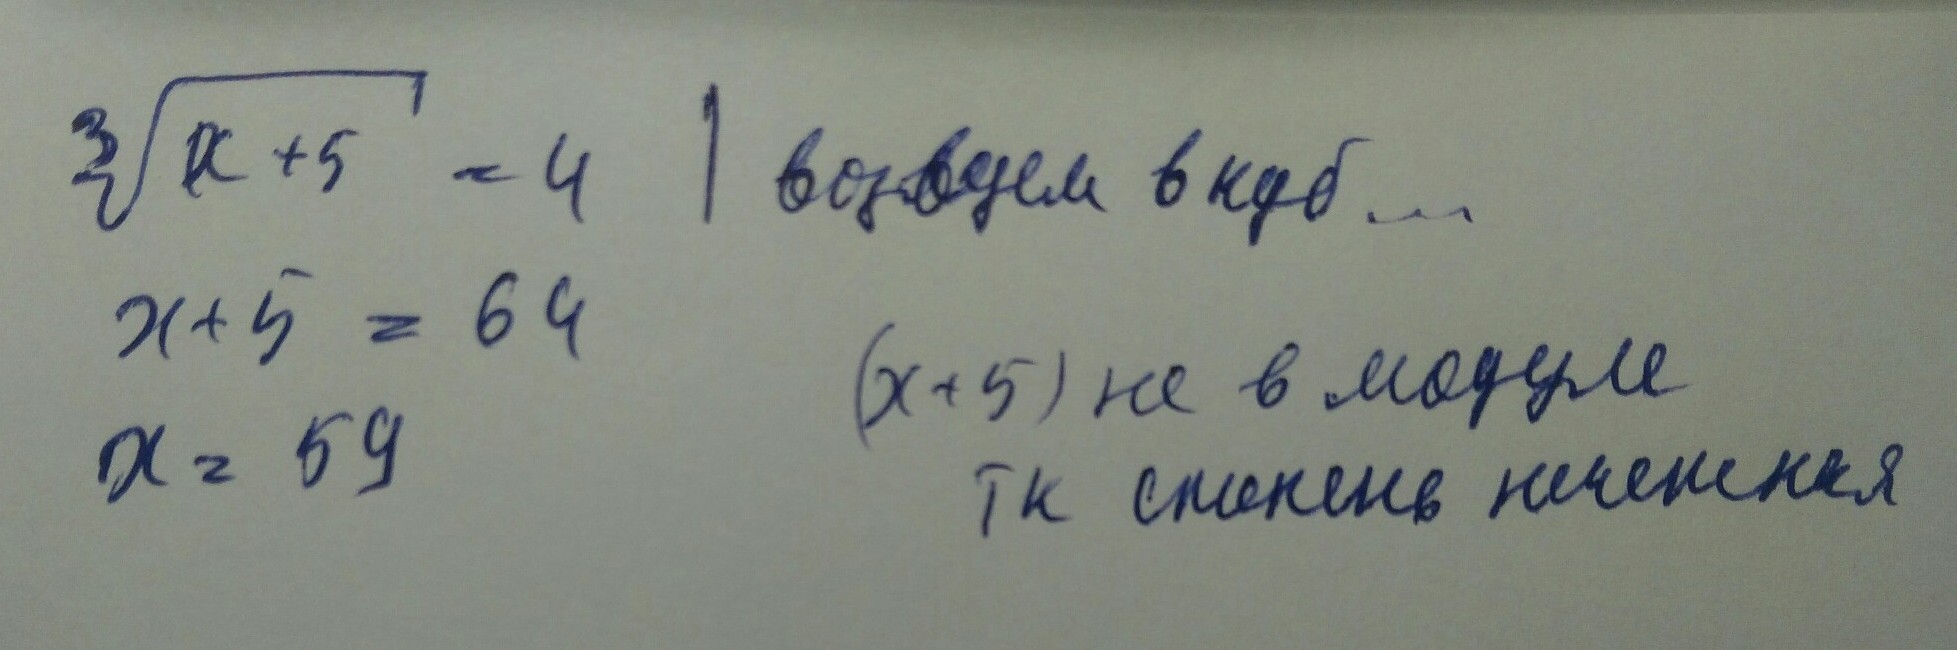 ∛(x+5) = 4 | возведем в куб...
x+5 = 64
(x+5) не в модуле
x = 59
тк степень нечетная